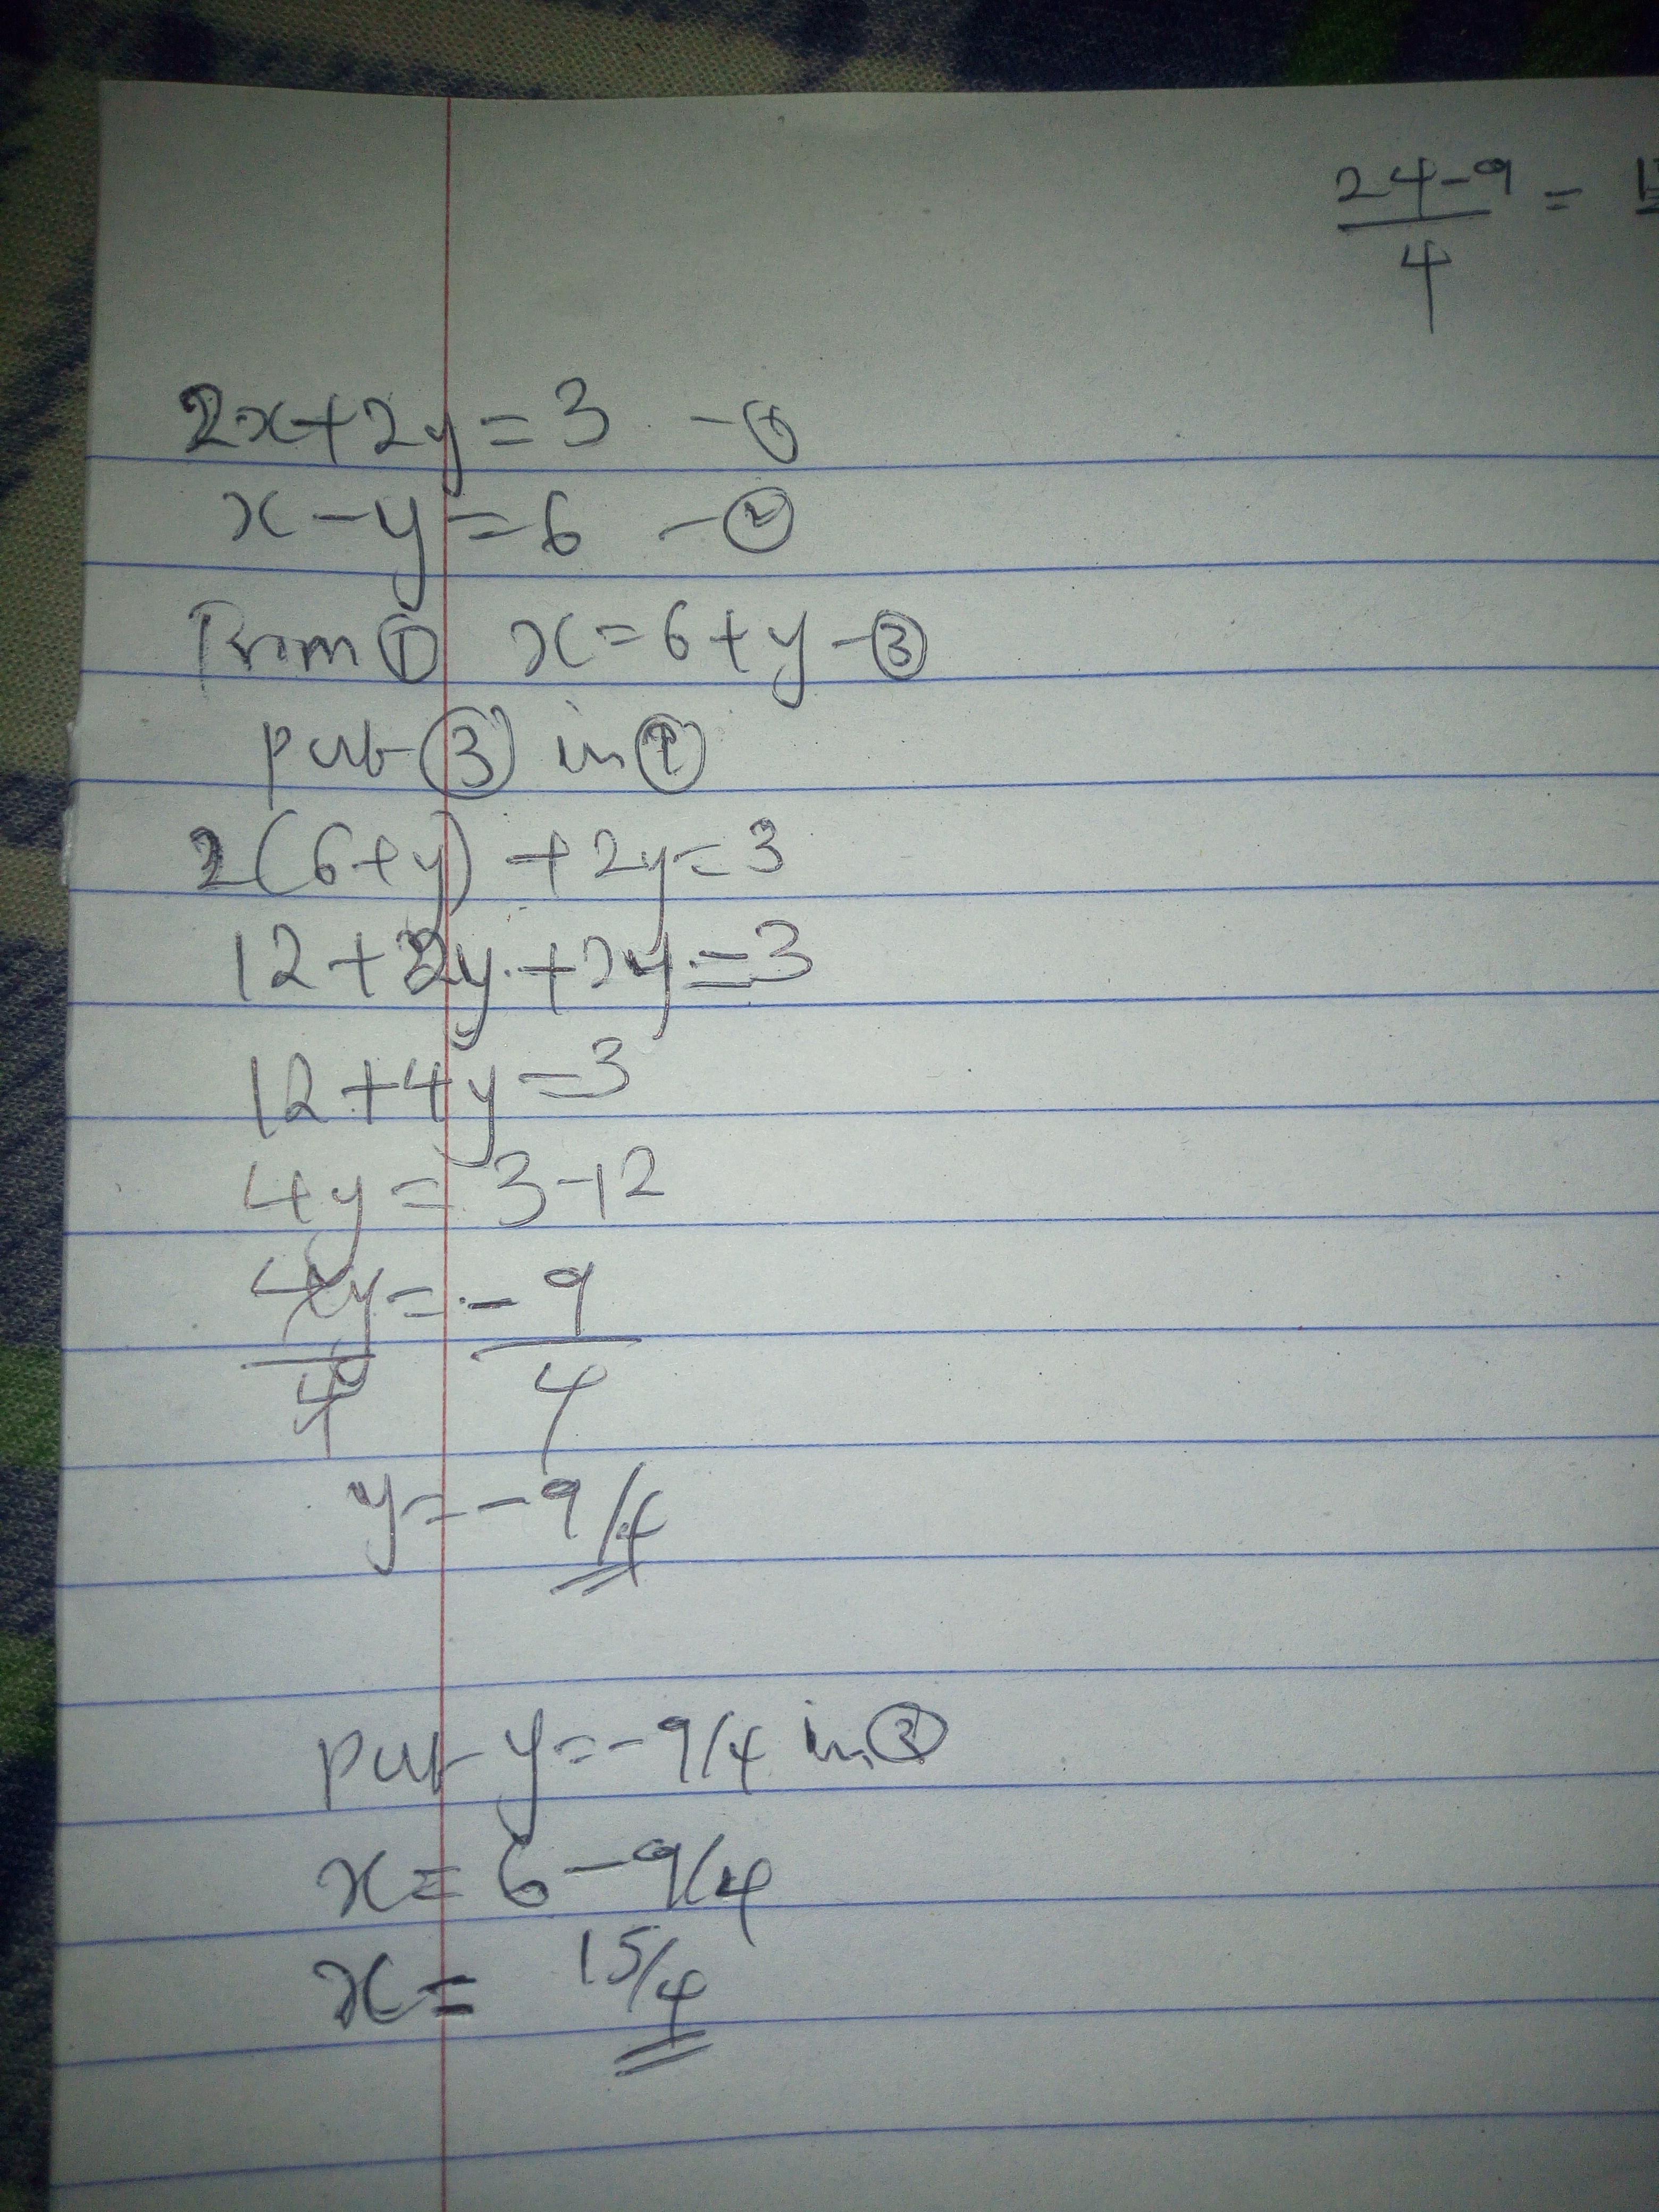 24-9/4 =
2x+2y=3 -①
x-y=6 -②
From ① x=6+y-③
put ③ in ①
2(6+y)+2y=3
12+2y+2y=3
12+4y=3
4y=3-12
4y/4=-9/4
y=-9/4
put y=-9/4 in ③
x=6-9/4
x= 15/4